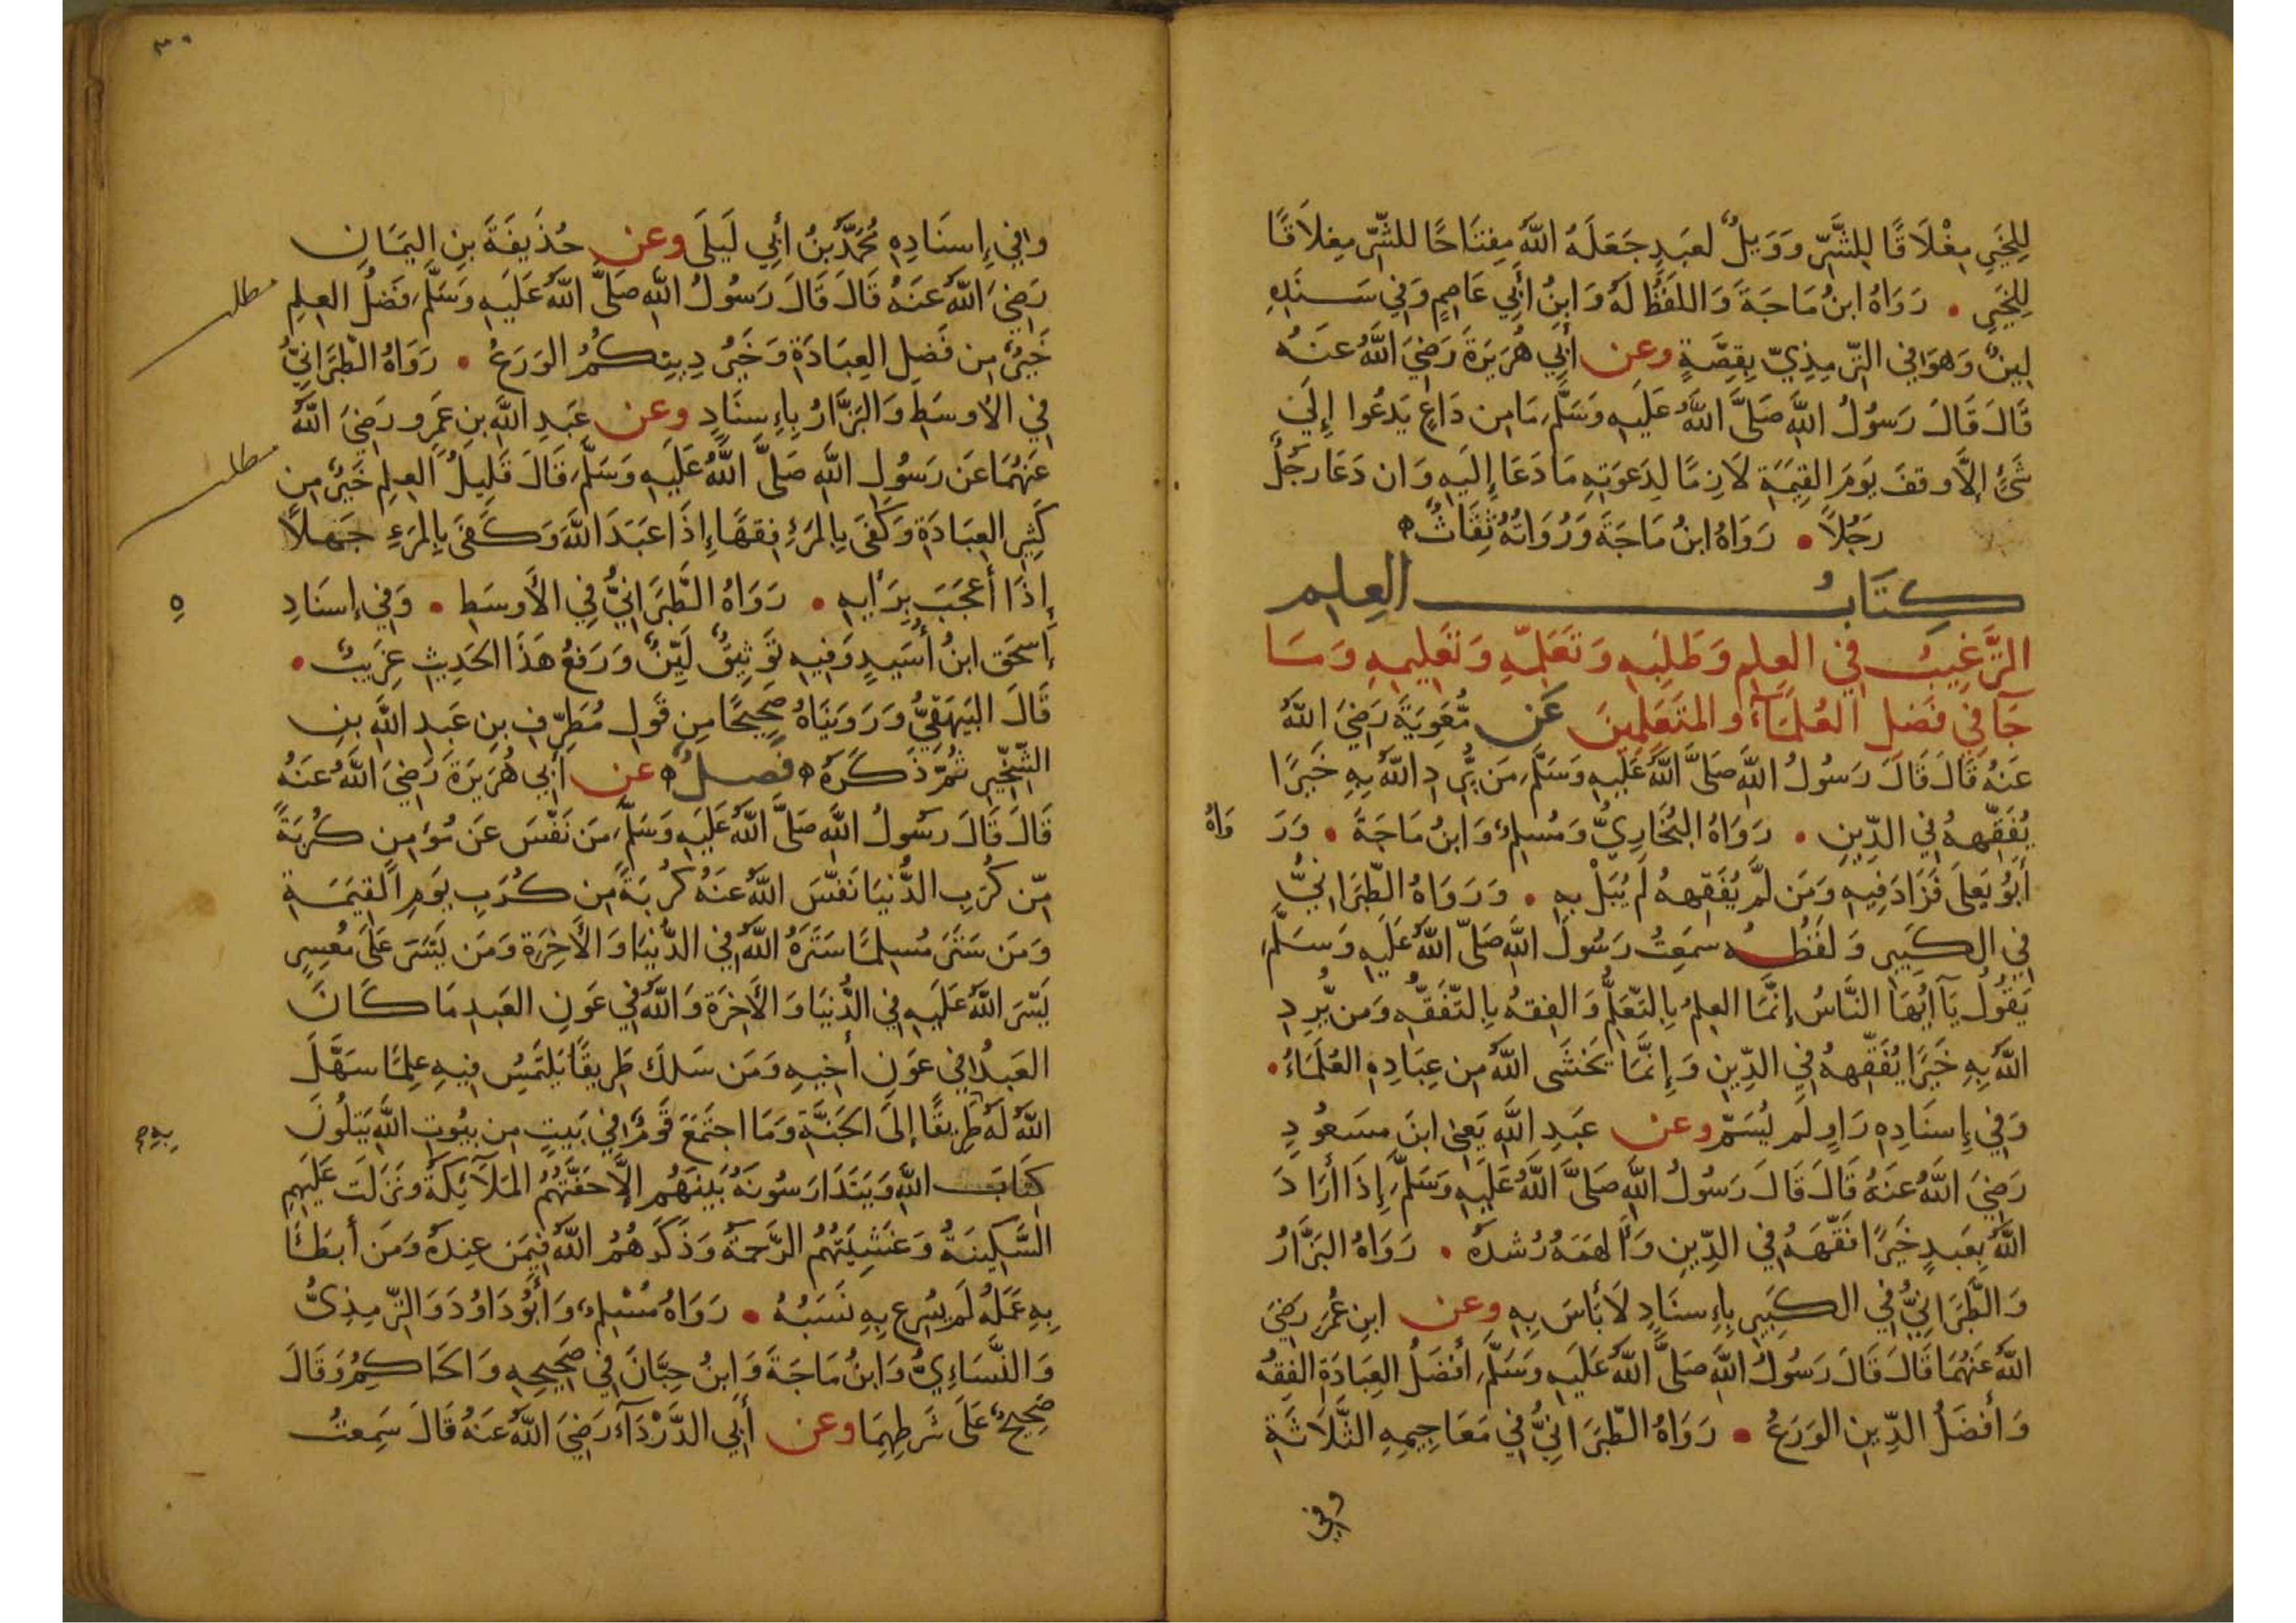 لِلخَيرِ مِغْلَاقًا لِلشَّرِّ وَوَيلٌ لعَبدٍ جَعَلَهُ اللَّهُ مِفتَاحًا للشَّرِّ مِغلَاقًا
لِلخَيرِ . رَوَاهُ ابنُ مَاجَةَ وَاللفَظُ لَهُ وَابنُ أَبِي عَاصِمٍ وَفِي سَنَدِهِ
لِينٌ وَهوَ فِي التِّرمِذِيِّ بِقِصَّةٍ وعن أَبِي هُرَيرَةَ رَضِيَ اللَّهُ عَنهُ
قَالَ قَالَ رَسُولُ اللَّهِ صَلَّى اللَّهُ عَلَيهِ وَسَلَّمَ مَا مِن دَاعٍ يَدعُوا إِلَى
شَيْءٍ إِلَّا وقفَ يَومَ القِيمَةِ لَازِمًا لِدَعوَتِهِ مَا دَعَا إِلَيهِ وَان دَعَا رَجُلٌ
رَجُلاً . رَوَاهُ ابنُ مَاجَةَ وَرُوَاتُهُ ثِقَاتٌ ه
كِتَابُ العِلمِ
الترَّغِيبُ فِي العِلمِ وَطَلَبِهِ وَتَعَلُّمِهِ وَتَعلِيمِهِ وَمَا
جَآ فِي فَضلِ العُلَمَآءِ والمتَعَلِّمِينَ عَن مُّعَوِيَةَ رَضِيَ اللَّهُ
عَنهُ قَالَ قَالَ رَسُولُ اللَّهِ صَلَّى اللَّهُ عَلَيهِ وَسَلَّمَ مَن يُّرِدِ اللَّهُ بِهِ خَيرًا
يُفَقِّههُ فِي الدِّينِ . رَوَاهُ البُخَارِيُّ وَمُسلِمٌ وَابنُ مَاجَةَ . وَرَ
وَاهُ
أَبُو يَعلَى فَزَادَ فِيهِ وَمَن لَّم يُفَقِّههُ لَم يُبَلْ بِهِ . وَرَوَاهُ الطَّبَرَانِيُّ
فِي الكَبِيرِ وَلَفظُهُ سَمِعتُ رَسُولَ اللَّهِ صَلَّى اللَّهُ عَلَيهِ وَسَلَّمَ
يَقُولُ يَآ أَيُّهَا النَّاسُ إِنَّمَا العِلمُ بِالتَّعَلُّمِ وَالفِقهُ بِالتَّفَقُّهِ وَمَن يُّرِدِ
اللَّهُ بِهِ خَيرًا يُفَقِّههُ فِي الدِّينِ وَإِنَّمَا يَخشَى اللَّهَ مِن عِبَادِهِ العُلَمَاءُ .
وَفِي إِسنَادِهِ رَاوٍ لَم يُسَمَّ وعن عَبدِ اللَّهِ يَعنِي ابنَ مسعُودٍ
رَضِيَ اللَّهُ عَنهُ قَالَ قَالَ رَسُولُ اللَّهِ صَلَّى اللَّهُ عَلَيهِ وَسَلَّمَ إِذَا أَرَادَ
اللَّهُ بِعَبدٍ خَيرًا فَقَّهَهُ فِي الدِّينِ وَأَلهَمَهُ رُشدَهُ . رَوَاهُ البَزَّارُ
وَالطَّبَرَانِيُّ فِي الكَبِيرِ بِإِسنَادٍ لَا بَأسَ بِهِ وعن ابنِ عُمَرَ رَضِيَ
اللَّهُ عَنهُمَا قَالَ قَالَ رَسُولُ اللَّهِ صَلَّى اللَّهُ عَلَيهِ وَسَلَّمَ أَفضَلُ العِبَادَةِ الفِقهُ
وَأَفضَلُ الدِّينِ الوَرَعُ . رَوَاهُ الطَّبَرَانِيُّ فِي مَعَاجِيمِهِ الثَّلَاثَةِ
وفي
٣٠
وفِي إِسنَادِهِ مُحَمَّدُ بنُ أَبِي لَيلَى وعن حُذَيفَةَ بنِ اليَمَانِ
رَضِيَ اللَّهُ عَنهُ قَالَ قَالَ رَسُولُ اللَّهِ صَلَّى اللَّهُ عَلَيهِ وَسَلَّمَ فَضلُ العِلمِ
مطلب
خَيرٌ مِن فَضلِ العِبَادَةِ وَخَيرُ دِينِكُمُ الوَرَعُ . رَوَاهُ الطَّبَرَانِيُّ
فِي الأَوسَطِ وَالبَزَّارُ بِإِسنَادٍ وعن عَبدِ اللَّهِ بنِ عَمرو رَضِيَ اللَّهُ
عَنهُمَا عَن رَسُولِ اللَّهِ صَلَّى اللَّهُ عَلَيهِ وَسَلَّمَ قَالَ قَلِيلُ العِلمِ خَيرٌ مِن
مطلب
كَثِيرِ العِبَادَةِ وَكَفَى بِالمَرءِ فِقهًا إِذَا عَبَدَ اللَّهَ وَكَفَى بِالمَرءِ جَهلاً
إِذَا أَعجَبَ بِرَأيِهِ . رَوَاهُ الطَّبَرَانِيُّ فِي الأَوسَطِ . وَفِي إِسنَادِ
ه
إِسحَق ابنُ أُسَيدٍ وَفِيهِ تَوثِيقٌ لَيِّنٌ وَرَفعُ هَذَا الحَدِيثِ غَرِيبٌ .
قَالَ البَيهَقِيُّ وَرَوَينَاهُ صَحِيحًا مِن قَولِ مُطَرِّفِ بنِ عَبدِ اللَّهِ بنِ
الشِّخِّيرِ ثُمَّ ذَكَرَهُ ه فصلٌ ه عن أَبِي هُرَيرَةَ رَضِيَ اللَّهُ عَنهُ
قَالَ قَالَ رَسُولُ اللَّهِ صَلَّى اللَّهُ عَلَيهِ وَسَلَّمَ مَن نَفَّسَ عَن مُؤمِنٍ كُربَةً
مِّن كُرَبِ الدُّنيَا نَفَّسَ اللَّهُ عَنهُ كُربَةً مِن كُرَبِ يَومِ القِيمَةِ
وَمَن سَتَرَ مُسلِمًا سَتَرَهُ اللَّهُ فِي الدُّنيَا وَالأَخِرَةِ وَمَن يَسَّرَ عَلَى مُعسِرٍ
يَسَّرَ اللَّهُ عَلَيهِ فِي الدُّنيَا وَالأَخِرَةِ وَاللَّهُ فِي عَونِ العَبدِ مَا كَانَ
العَبدُ فِي عَونِ أَخِيهِ وَمَن سَلَكَ طَرِيقًا يَلتَمِسُ فِيهِ عِلمًا سَهَّلَ
اللَّهُ لَهُ طَرِيقًا إِلَى الجَنَّةِ وَمَا اجتَمَعَ قَومٌ فِي بَيتٍ مِن بيُوتِ اللَّهِ يَتلُونَ
بِهِ
كِتَابَ اللَّهِ وَيَتَدَارَسُونَهُ بَينَهُم إِلَّا حَفَّتهُمُ المَلَآئِكَةُ وَنَزَلَت عَلَيهِم
السَّكِينَةُ وَغَشِيَتهُمُ الرَّحمَةُ وَذَكَرَهُمُ اللَّهُ فِيمَن عِندَهُ وَمَن أَبطَأَ
بِهِ عَمَلُهُ لَم يُسرِع بِهِ نَسَبُهُ . رَوَاهُ مُسْلِمٌ وَأَبُو دَاوُدَ وَالتِّرمِذِيُّ
وَالنَّسَاءِيُّ وَابنُ مَاجَةَ وَابنُ حِبَّانَ فِي صَحِيحِهِ وَالحَاكِمُ وَقَالَ
صَحِيحٌ عَلَى شَرطِهِمَا وعن أَبِي الدَّرْدَآءِ رَضِيَ اللَّهُ عَنهُ قَالَ سَمِعتُ